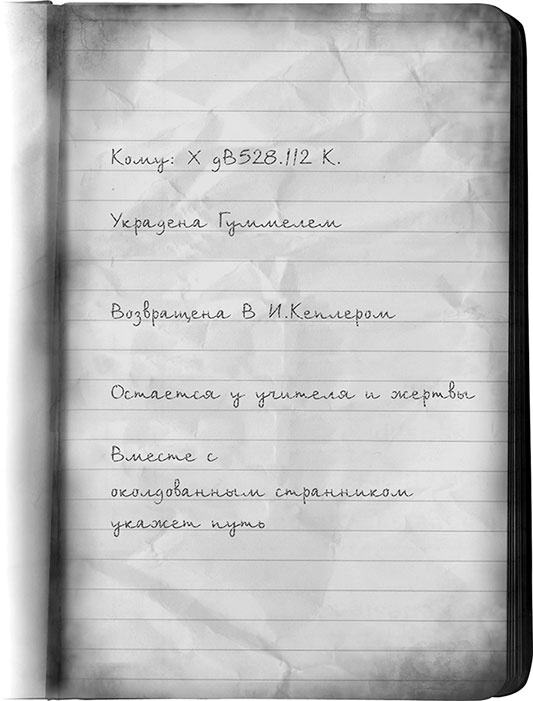 Кому: Х дВ528.112 К.
Украдена Гуммелем
Возвращена В И.Кеплером
Остается у учителя и жертвы
Вместе с
околдованным странником
укажет путь